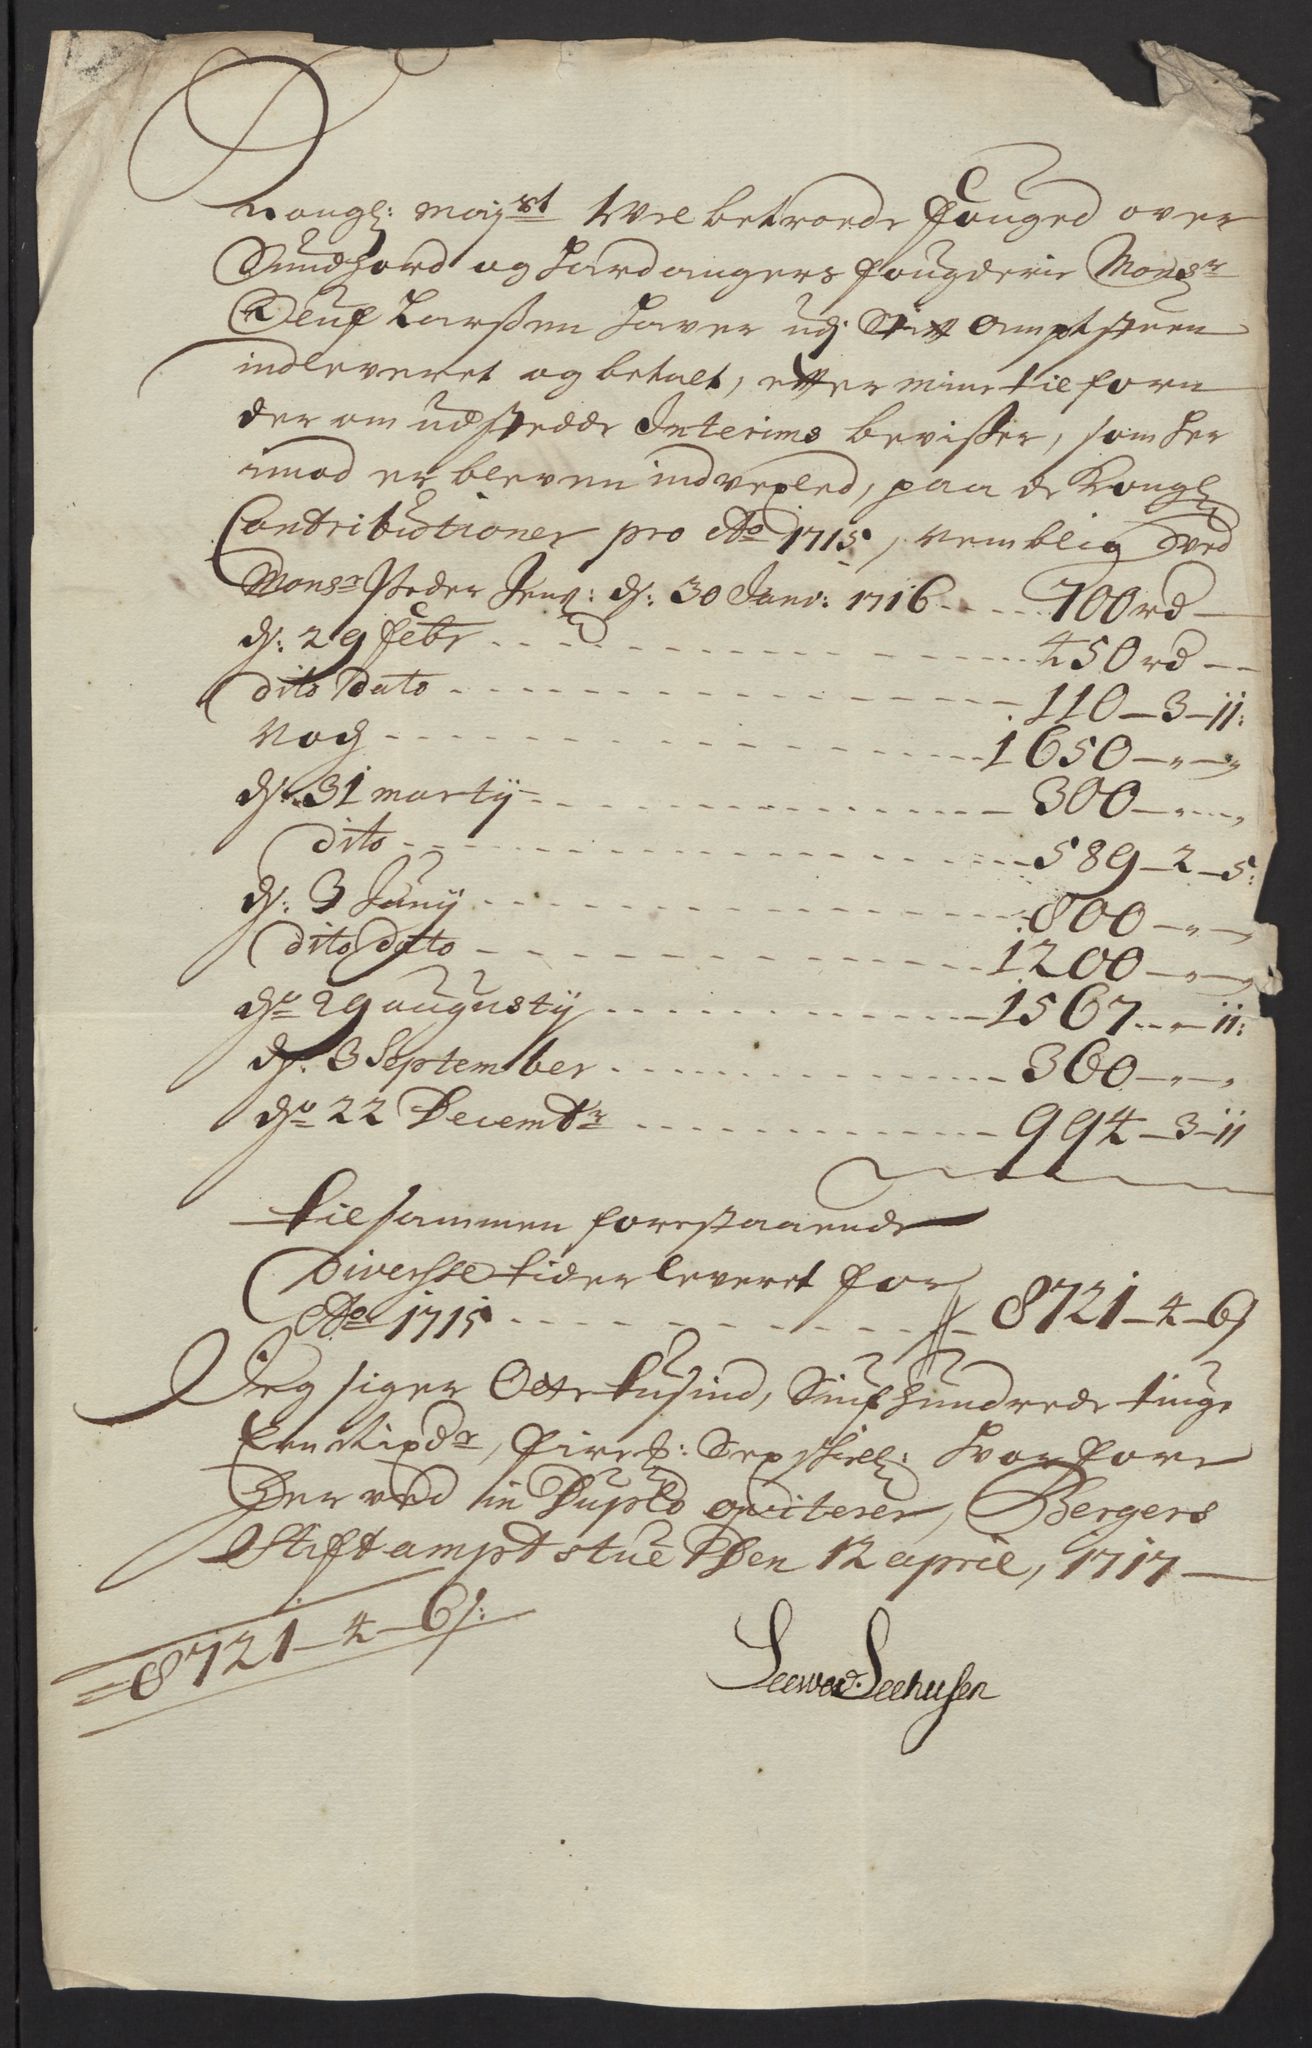 Kongl: Mayst Wel betroede Fouged over
Sundhord og Hardangers fougderie Monsr
Ceuf Larsen haver udj Stift Amptstuen
indleveret og betalt, efter mine tilforn
der om udstædde Interims beviser, som her
imod er bleven indvexled, paa de Kongl
Contributioner pro Ao 1715, nemblig Ved
Monsr Peder Jens: d: 30 Janv: 1716 700 rd
d: 29 Febr 450 rd
dito Dato 110-3-11:
Noch 1650
d: 31 Martij 300
dito 589-2-5:
d: 3 Junij 800
dito Dato 1200
do 29 Augustij 1567-„-11:
d: 3 September 360
do 22 Decembr 994-3-11
tilsammen forestaaende
Diversse tider leveret for
Ao 1715 8721-4-6
Jeg siger Otte tusind, Siufhundrede tiuge
Een Rixdr, fire : Sex skill: hvorfore
Herved in Duplo qviterer, Bergens
Stiftamptstue Den 12 april, 1717
8721-4-6:
Seehusen